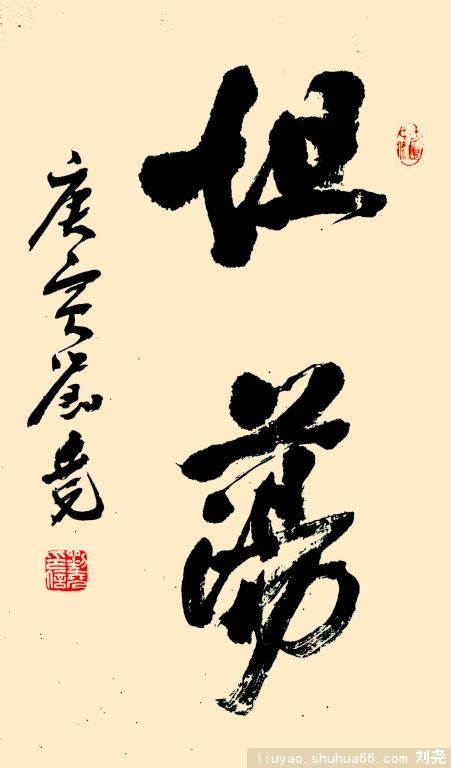 坦荡
庚寅刘尧
liuyao.shuhua66.com 刘尧